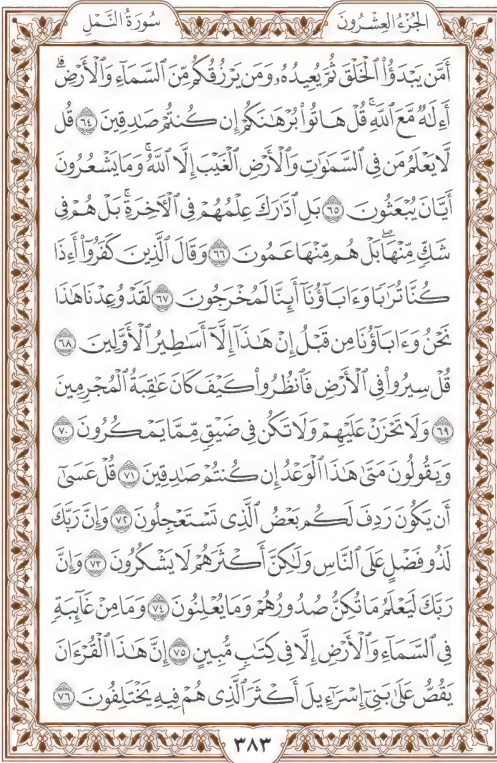 الجُزْءُ العِشْرُونَ
سُورَةُ النَّمْلِ
أَمَّن يَبْدَؤُاْ ٱلْخَلْقَ ثُمَّ يُعِيدُهُۥ وَمَن يَرْزُقُكُم مِّنَ ٱلسَّمَآءِ وَٱلْأَرْضِۗ
أَءِلَٰهٌ مَّعَ ٱللَّهِۚ قُلْ هَاتُواْ بُرْهَٰنَكُمْ إِن كُنتُمْ صَٰدِقِينَ ٦٤ قُل
لَّا يَعْلَمُ مَن فِي ٱلسَّمَٰوَٰتِ وَٱلْأَرْضِ ٱلْغَيْبَ إِلَّا ٱللَّهُۚ وَمَا يَشْعُرُونَ
أَيَّانَ يُبْعَثُونَ ٦٥ بَلِ ٱدَّٰرَكَ عِلْمُهُمْ فِي ٱلْأٓخِرَةِۚ بَلْ هُمْ فِي
شَكٍّ مِّنْهَاۖ بَلْ هُم مِّنْهَا عَمُونَ ٦٦ وَقَالَ ٱلَّذِينَ كَفَرُوٓاْ أَءِذَا
كُنَّا تُرَٰبًا وَءَابَآؤُنَآ أَئِنَّا لَمُخْرَجُونَ ٦٧ لَقَدْ وُعِدْنَا هَٰذَا
نَحْنُ وَءَابَآؤُنَا مِن قَبْلُ إِنْ هَٰذَآ إِلَّآ أَسَٰطِيرُ ٱلْأَوَّلِينَ ٦٨
قُلْ سِيرُواْ فِي ٱلْأَرْضِ فَٱنظُرُواْ كَيْفَ كَانَ عَٰقِبَةُ ٱلْمُجْرِمِينَ
٦٩ وَلَا تَحْزَنْ عَلَيْهِمْ وَلَا تَكُن فِي ضَيْقٍ مِّمَّا يَمْكُرُونَ ٧٠
وَيَقُولُونَ مَتَىٰ هَٰذَا ٱلْوَعْدُ إِن كُنتُمْ صَٰدِقِينَ ٧١ قُلْ عَسَىٰٓ
أَن يَكُونَ رَدِفَ لَكُم بَعْضُ ٱلَّذِي تَسْتَعْجِلُونَ ٧٢ وَإِنَّ رَبَّكَ
لَذُو فَضْلٍ عَلَى ٱلنَّاسِ وَلَٰكِنَّ أَكْثَرَهُمْ لَا يَشْكُرُونَ ٧٣ وَإِنَّ
رَبَّكَ لَيَعْلَمُ مَا تُكِنُّ صُدُورُهُمْ وَمَا يُعْلِنُونَ ٧٤ وَمَا مِنْ غَآئِبَةٍ
فِي ٱلسَّمَآءِ وَٱلْأَرْضِ إِلَّا فِي كِتَٰبٍ مُّبِينٍ ٧٥ إِنَّ هَٰذَا ٱلْقُرْءَانَ
يَقُصُّ عَلَىٰ بَنِيٓ إِسْرَٰٓءِيلَ أَكْثَرَ ٱلَّذِي هُمْ فِيهِ يَخْتَلِفُونَ ٧٦
٣٨٣